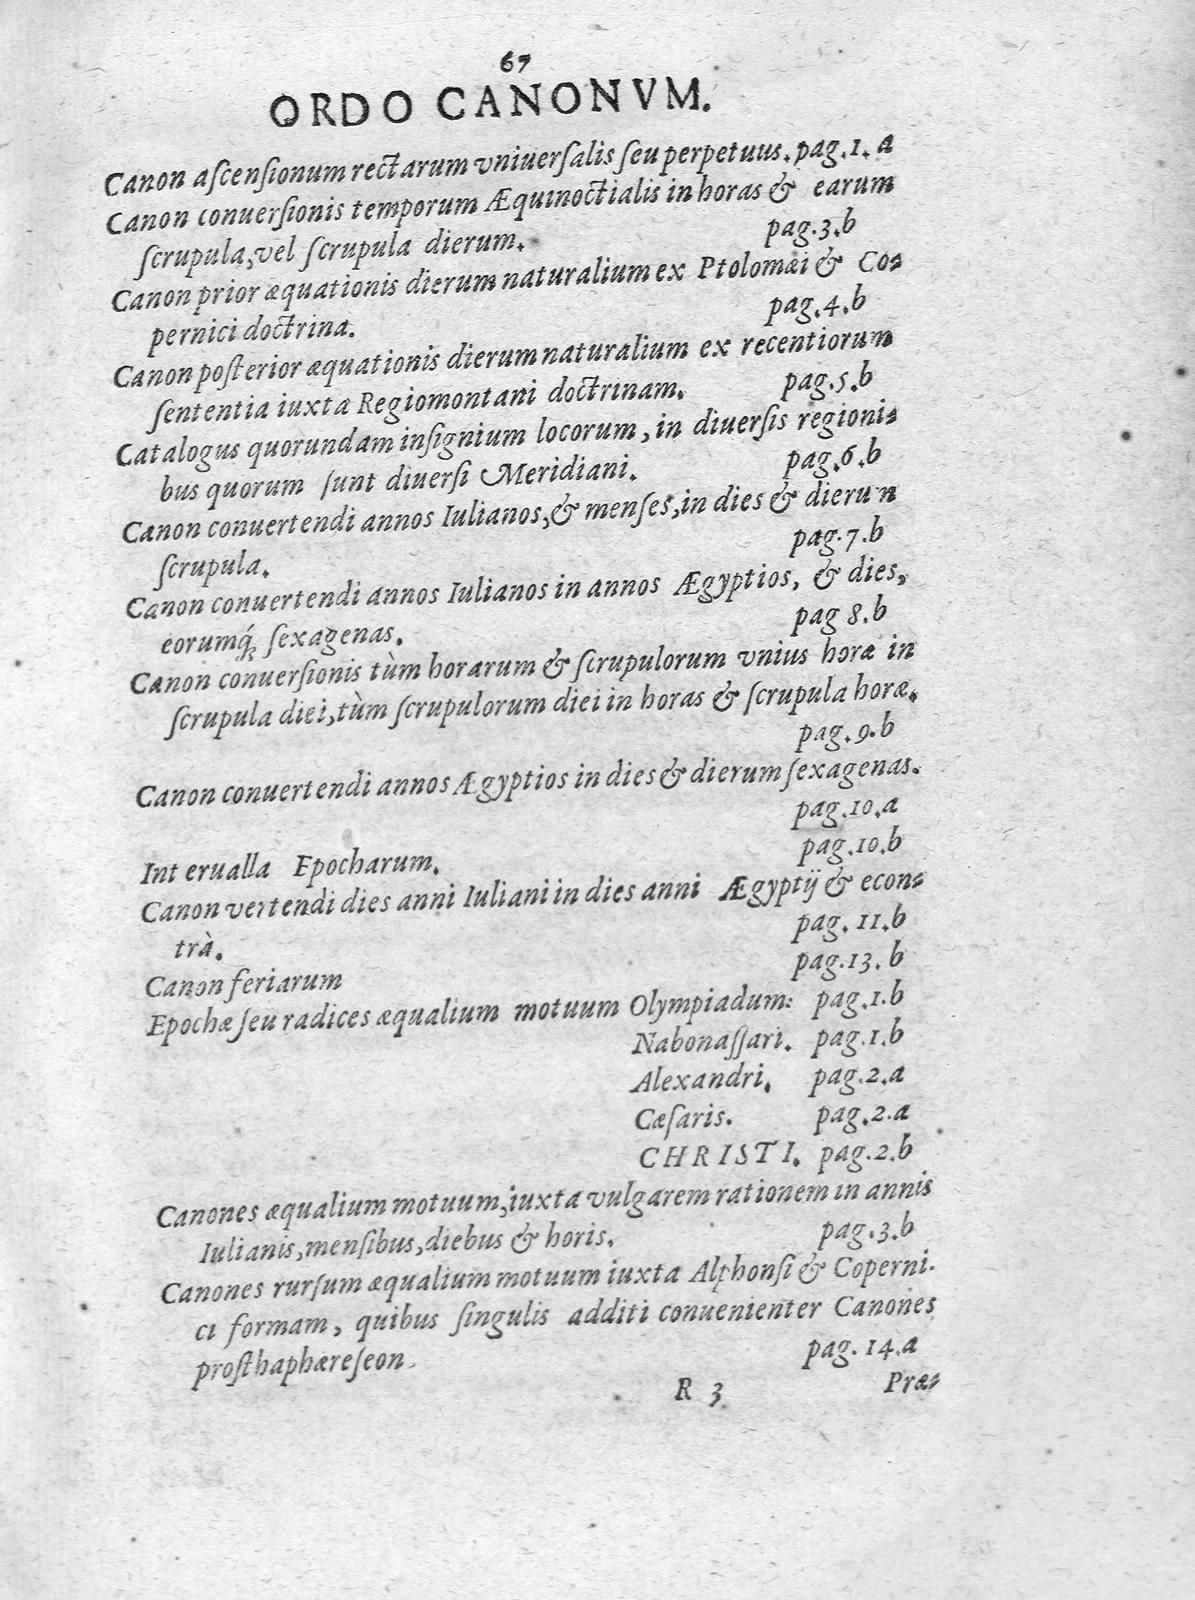 67
ORDO CANONVM.
Canon aſcenſionum rectarum vniuerſalis ſeu perpetuus. pag. 1. a
Canon conuerſionis temporum Æquinoctialis in horas & earum
ſcrupula, vel ſcrupula dierum. pag. 3. b
Canon prior æquationis dierum naturalium ex Ptolomæi & Co⸗
pernici doctrina. pag. 4. b
Canon poſterior æquationis dierum naturalium ex recentiorum
ſententia iuxta Regiomontani doctrinam. pag. 5. b
Catalogus quorundam inſignium locorum, in diuerſis regioni⸗
bus quorum ſunt diuerſi Meridiani. pag. 6. b
Canon conuertendi annos Iulianos, & menſes, in dies & dierum
ſcrupula. pag. 7. b
Canon conuertendi annos Iulianos in annos Ægyptios, & dies,
eorumq́; ſexagenas. pag 8. b
Canon conuerſionis tùm horarum & ſcrupulorum vnius horæ in
ſcrupula diei, tùm ſcrupulorum diei in horas & ſcrupula horæ.
pag. 9. b
Canon conuertendi annos Ægyptios in dies & dierum ſexagenas.
pag. 10. a
Interualla Epocharum. pag. 10. b
Canon vertendi dies anni Iuliani in dies anni Ægyptij & econ⸗
trà. pag. 11. b
Canon feriarum pag. 13. b
Epochæ ſeu radices æqualium motuum Olympiadum: pag. 1. b
Nabonaſſari. pag. 1. b
Alexandri. pag. 2. a
Cæſaris. pag. 2. a
CHRISTI. pag. 2. b
Canones æqualium motuum, iuxta vulgarem rationem in annis
Iulianis, menſibus, diebus & horis. pag. 3. b
Canones rurſum æqualium motuum iuxta Alphonſi & Coperni-
ci formam, quibus ſingulis additi conuenienter Canones
proſthaphæreſeon. pag. 14. a
R 3 Præ⸗